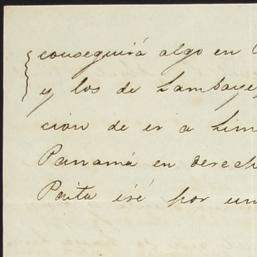 conseguirá algo en
y los de Lambaye
ción de ir a Lim
Panamá en derech
Paita iré por un